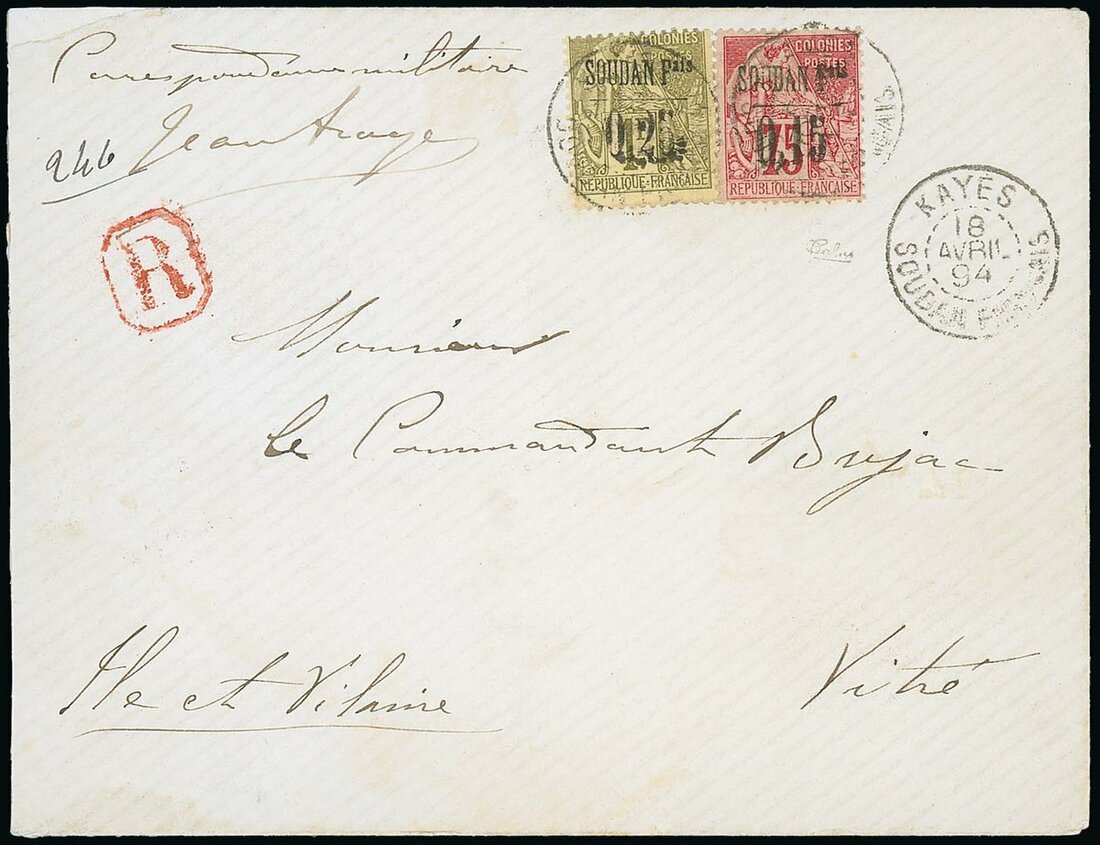 Correspondance militaire
Jean
246
R
COLONIES
POSTES
SOUDAN Fais
0,25
REPUBLIQUE FRANÇAISE
COLONIES
POSTES
SOUDAN Fais
0,15
75
REPUBLIQUE FRANÇAISE
KAYES
18
AVRIL
94
SOUDAN FRANÇAIS
Monsieur
le Commandant Bujac
Vitré
Ile et Vilaine